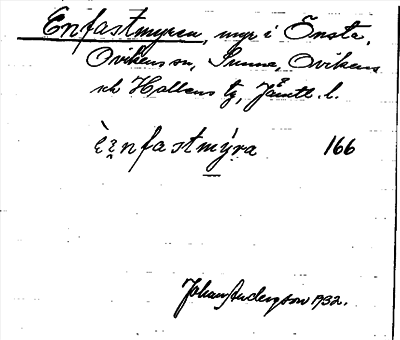 Enfastmyren, myr i Ensta,
Ovikens sn, Sunne, Ovikens
och Hallens tg, Jämtl. l.
ȅȩnfastmýra 166
Johan Anderzson 1932.